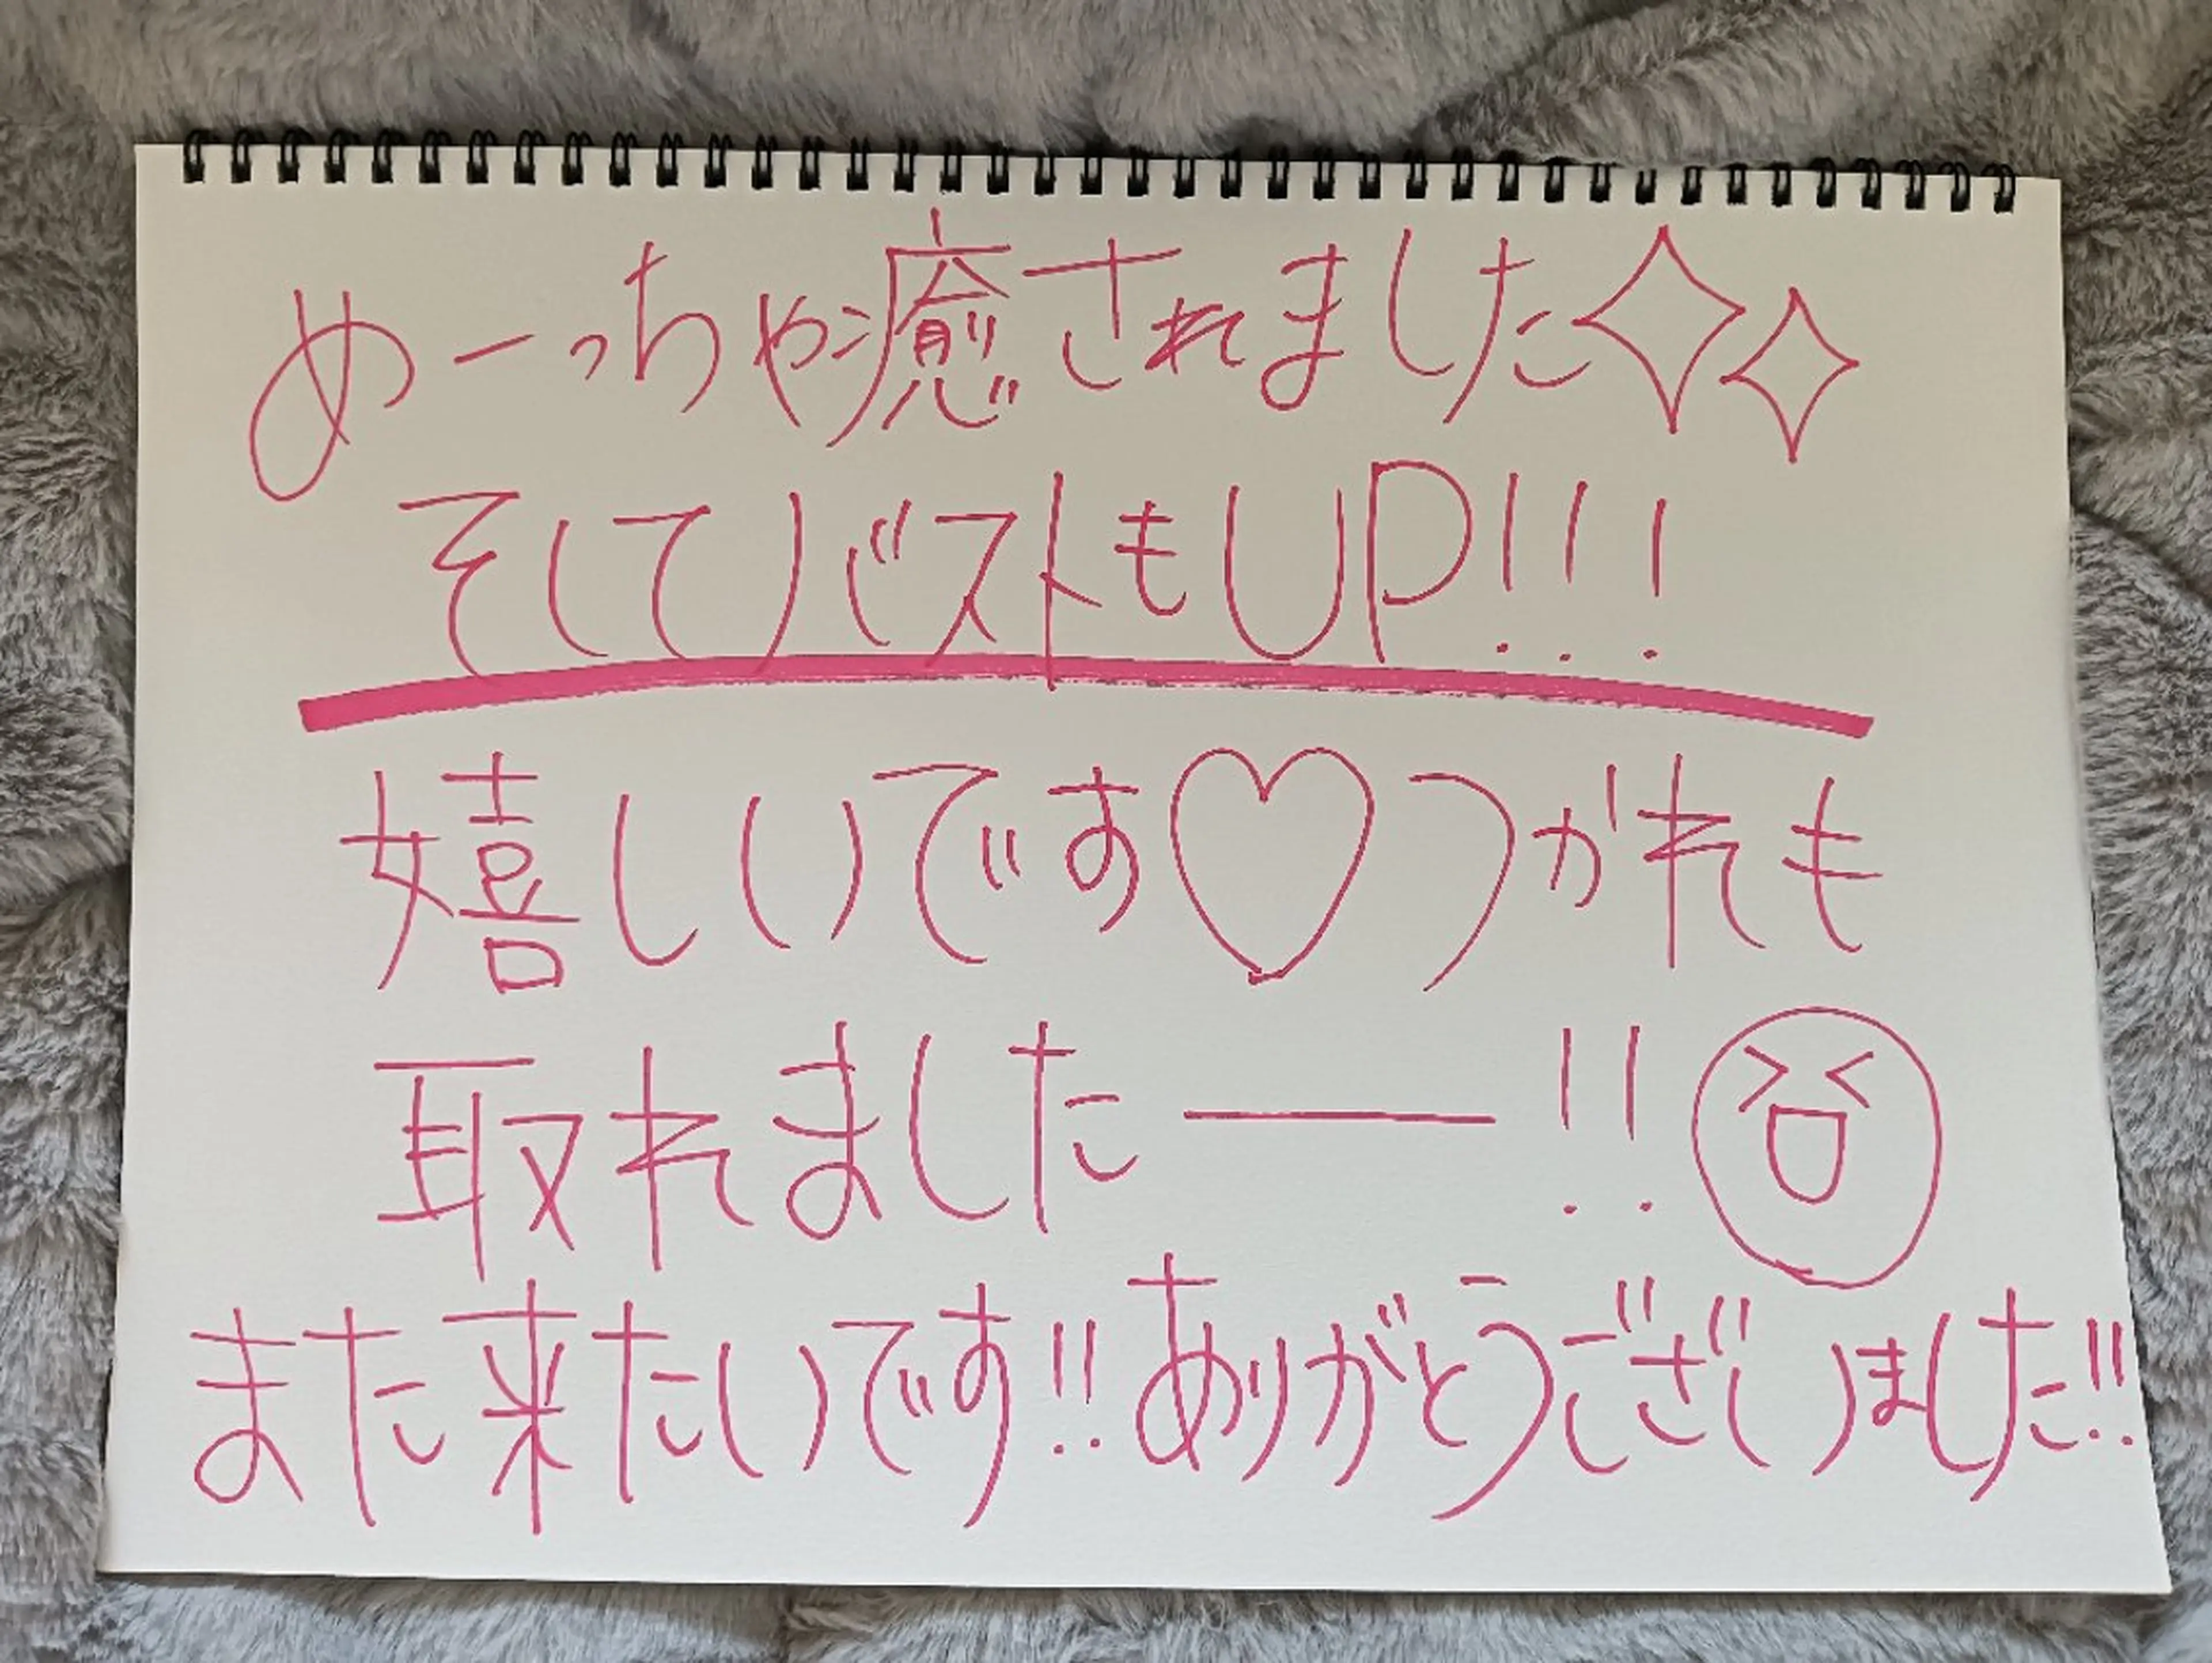 めーっちゃ癒されました✧✧
そしてバストもUP!!!
嬉しいです♡つかれも
取れましたー!!
また来たいです!!ありがとうございました!!